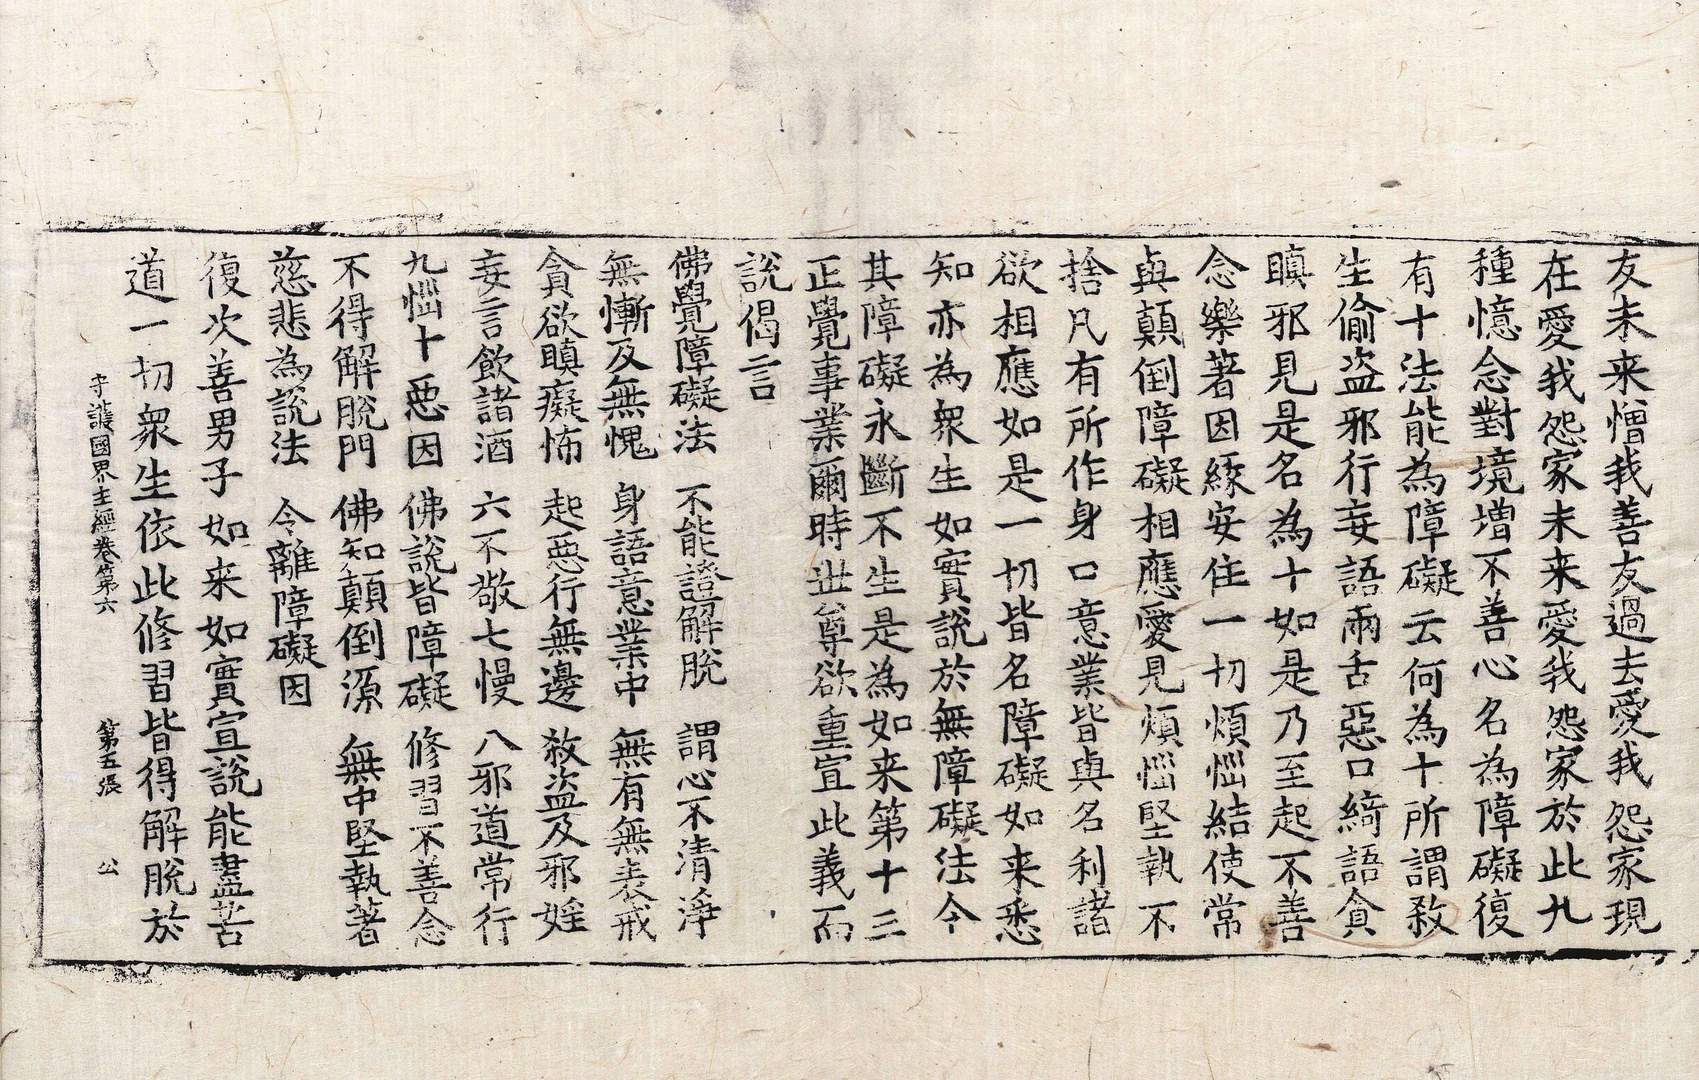 友未来憎我善友過去愛我怨家現
在愛我怨家未来愛我怨家於此九
種憶念對境増不善心名為障礙復
有十法能為障礙云何為十所謂殺
生偷盜邪行妄語兩舌惡口綺語貪
瞋邪見是名為十如是乃至起不善
念樂著因緣安住一切煩惱結使常
與顛倒障礙相應愛見煩惱堅執不
捨凡有所作身口意業皆與名利諸
欲相應如是一切皆名障礙如来悉
知亦為衆生如實說於無障礙法令
其障礙永斷不生是為如来第十三
正覺事業爾時世尊欲重宣此義而
說偈言
佛覺障礙法　不能證解脫　謂心不清淨
無慚及無愧　身語意業中　無有無表戒
貪欲瞋癡怖　起惡行無邊　殺盜及邪婬
妄言飲諸酒　六不敬七慢　八邪道常行
九惱十惡因　佛說皆障礙　修習不善念
不得解脫門　佛知顛倒源　無中堅執著
慈悲為說法　令離障礙因
復次善男子如来如實宣說能盡苦
道一切衆生依此修習皆得解脫於
守護國界主經卷第六　第五張　公